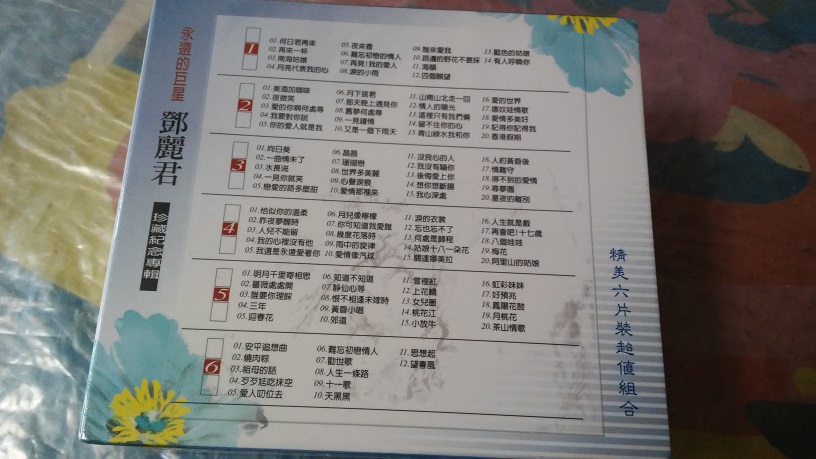 永遠的巨星
鄧麗君
珍藏紀念專輯
1
01.何日君再來
02.再來一杯
03.南海姑娘
04.月亮代表我的心
05.夜來香
06.難忘初戀的情人
07.再見!我的愛人
08.淚的小雨
09.誰來愛我
10.路邊的野花不要採
11.海韻
12.四個願望
13.藍色的姑娘
14.有人呼喚你
2
01.美酒加咖啡
02.夜微笑
03.愛的你啊何處尋
04.我要對你說
05.你的愛人就是我
06.月下送君
07.那天晚上遇見你
08.舊夢何處尋
09.一見鍾情
10.又是一個下雨天
11.山南山北走一回
12.情人的關光
13.這裡只有我們倆
14.留不住你的心
15.青山綠水我和你
16.愛的世界
17.娜奴娃情歌
18.愛情多美好
19.記得你記得我
20.香港假期
3
01.向日葵
02.一曲情未了
03.水長流
04.一見你就笑
05.戀愛的路多麼甜
06.晶晶
07.珊瑚戀
08.世界多美麗
09.心聲淚痕
10.愛情那裡來
11.沒良心的人
12.我沒有騙你
13.後悔愛上你
14.想你想斷腸
15.我心深處
16.人約黃昏後
17.情難守
18.得不到的愛情
19.尋夢園
20.星夜的離別
4
01.恰似你的溫柔
02.昨夜夢醒時
03.人兒不能留
04.我的心裡沒有他
05.我還是永遠愛著你
06.月兒像檸檬
07.你可知道我愛誰
08.幾度花落時
09.雨中的旋律
10.愛情像汽球
11.淚的衣裳
12.忘也忘不了
13.何處是歸程
14.姑娘十八一朵花
15.鍾達娜美拉
16.人生就是戲
17.再會吧!十七歲
18.八個娃娃
19.梅花
20.阿里山的姑娘
5
01.明月千里寄相思
02.薔薇處處開
03.誰要你理睬
04.三年
05.迎春花
06.知道不知道
07.靜仙心等
08.恨不相逢未嫁時
09.黃昏小唱
10.郊道
11.雪裡紅
12.上花轎
13.女兒圈
14.桃花江
15.小放牛
16.虹彩妹妹
17.好預兆
18.鳳陽花鼓
19.月桃花
20.茶山情歌
6
01.安平追想曲
02.燒肉粽
03.祖母的話
04.歹歹尪吃抹空
05.愛人叨位去
06.難忘初戀情人
07.勸世歌
08.人生一條路
09.十一歌
10.天黑黑
11.思想起
12.望春風
精美六片裝超值組合